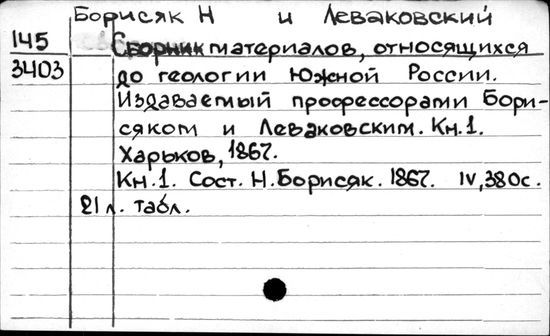 Борисяк Н и Леваковский
145 Сборник материалов, относящихся
3403 до геологии Южной России.
Издаваемый профессорами Бори-
сяком и Леваковским. Кн.1.
Харьков, 1867.
Кн.1. Сост. Н.Борисяк. 1867. IV, 380с.
21 л. табл.